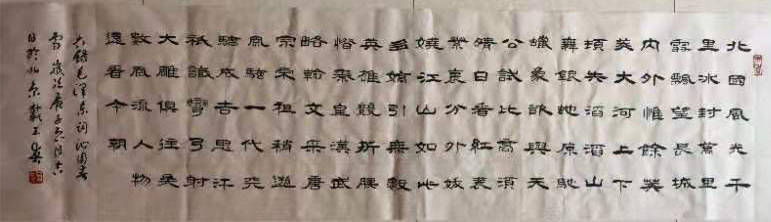 北國風光千
里冰封萬里
雪飄望長城
内外惟餘莽
莽大河上下
頓失滔滔山
舞銀蛇原馳
蠟象欲與天
公試比高須
晴日看紅裝
素裹分外妖
嬈江山如此
多嬌引無數
英雄競折腰
惜秦皇漢武
略輸文采唐
宗宋祖稍遜
風騷一代天
驕成吉思汗
祇識彎弓射
大雕俱往矣
數風流人物
還看今朝
録毛澤東詞沁園春
雪歲次庚子
日於北京